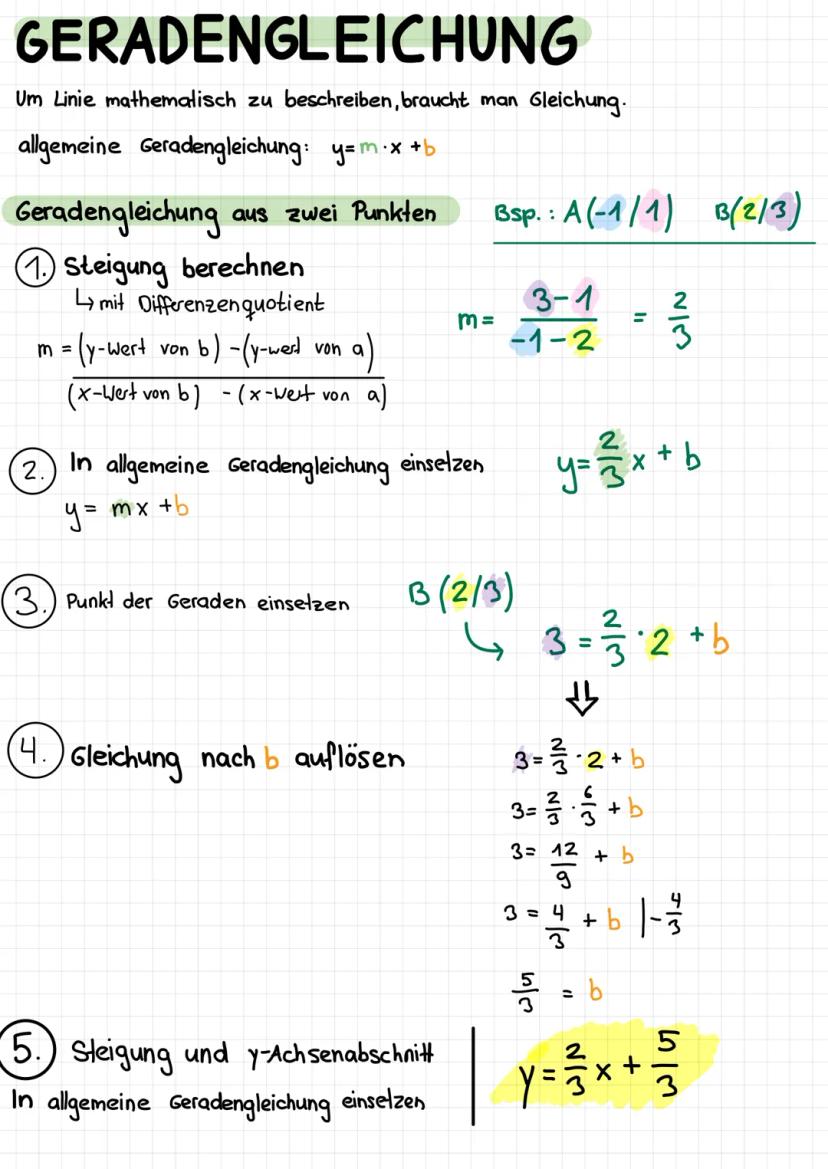 GERADENGLEICHUNG
Um Linie mathematisch zu beschreiben, braucht man Gleichung.
allgemeine Geradengleichung: y=m·x +b
Geradengleichung aus zwei Punkten
Bsp.: A(-1/1) B(2/3)
1. Steigung berechnen
↳ mit Differenzenquotient
m = (y-Wert von b) - (y-wert von a)
(x-Wert von b) - (x-Wert von a)
m= 3-1 / -1-2 = 2/3
2. In allgemeine Geradengleichung einsetzen
y = mx +b
y= 2/3 x + b
3. Punkt der Geraden einsetzen
B (2/3)
↳ 3 = 2/3 · 2 + b
⇓
4. Gleichung nach b auflösen
3= 2/3 · 2 + b
3= 2/3 · 6/3 + b
3= 12/9 + b
3 = 4/3 + b |- 4/3
5/3 = b
5. Steigung und y-Achsenabschnitt
In allgemeine Geradengleichung einsetzen
y = 2/3 x + 5/3